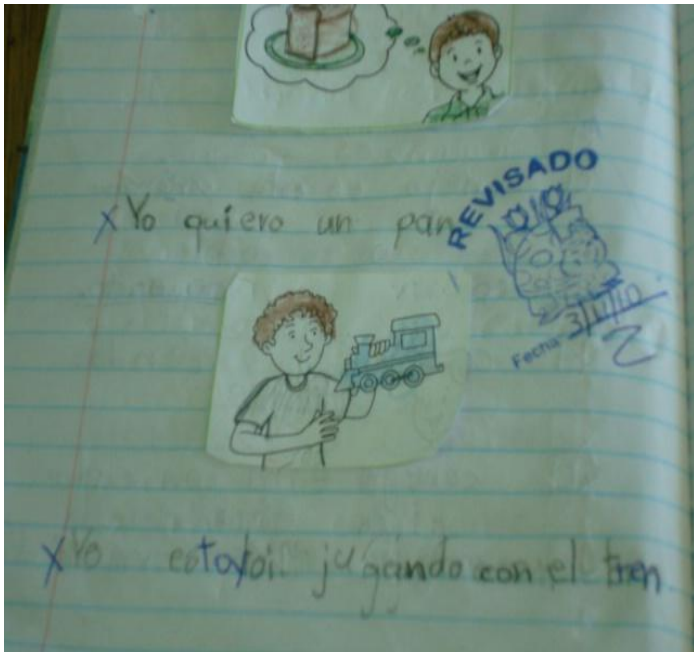 x Yo quiero un pan
REVISADO
Fecha 3/11/10
x Yo estoy jugando con el tren